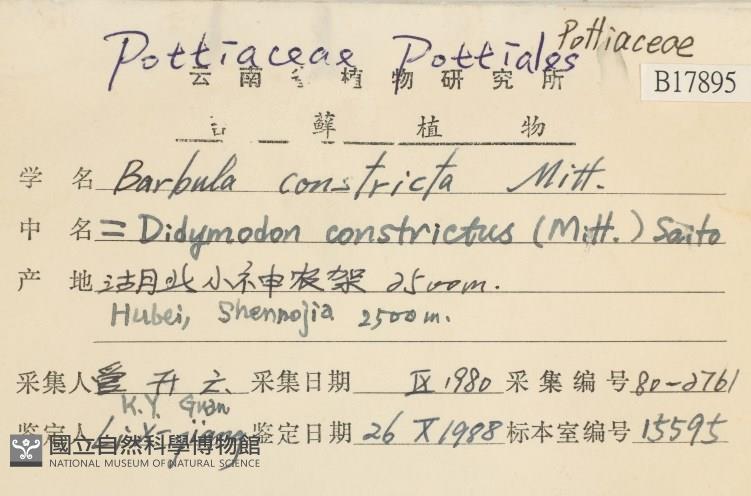 Pottiaceae Pottiales Pottiaceae
云南 植物研究所
B17895
藓 植 物
学 名 Barbula constricta Mitt.
中 名 = Didymodon constrictus (Mitt.) Saito
产 地 湖北小神农架 2500m.
Hubei, Shennojia 2500m.
采集人 开 采集日期 IX 1980 采集编号 80-2761
K.Y. Guan
鉴定人 鉴定日期 26 X 1988 标本室编号 15595
國立自然科學博物館
NATIONAL MUSEUM OF NATURAL SCIENCE